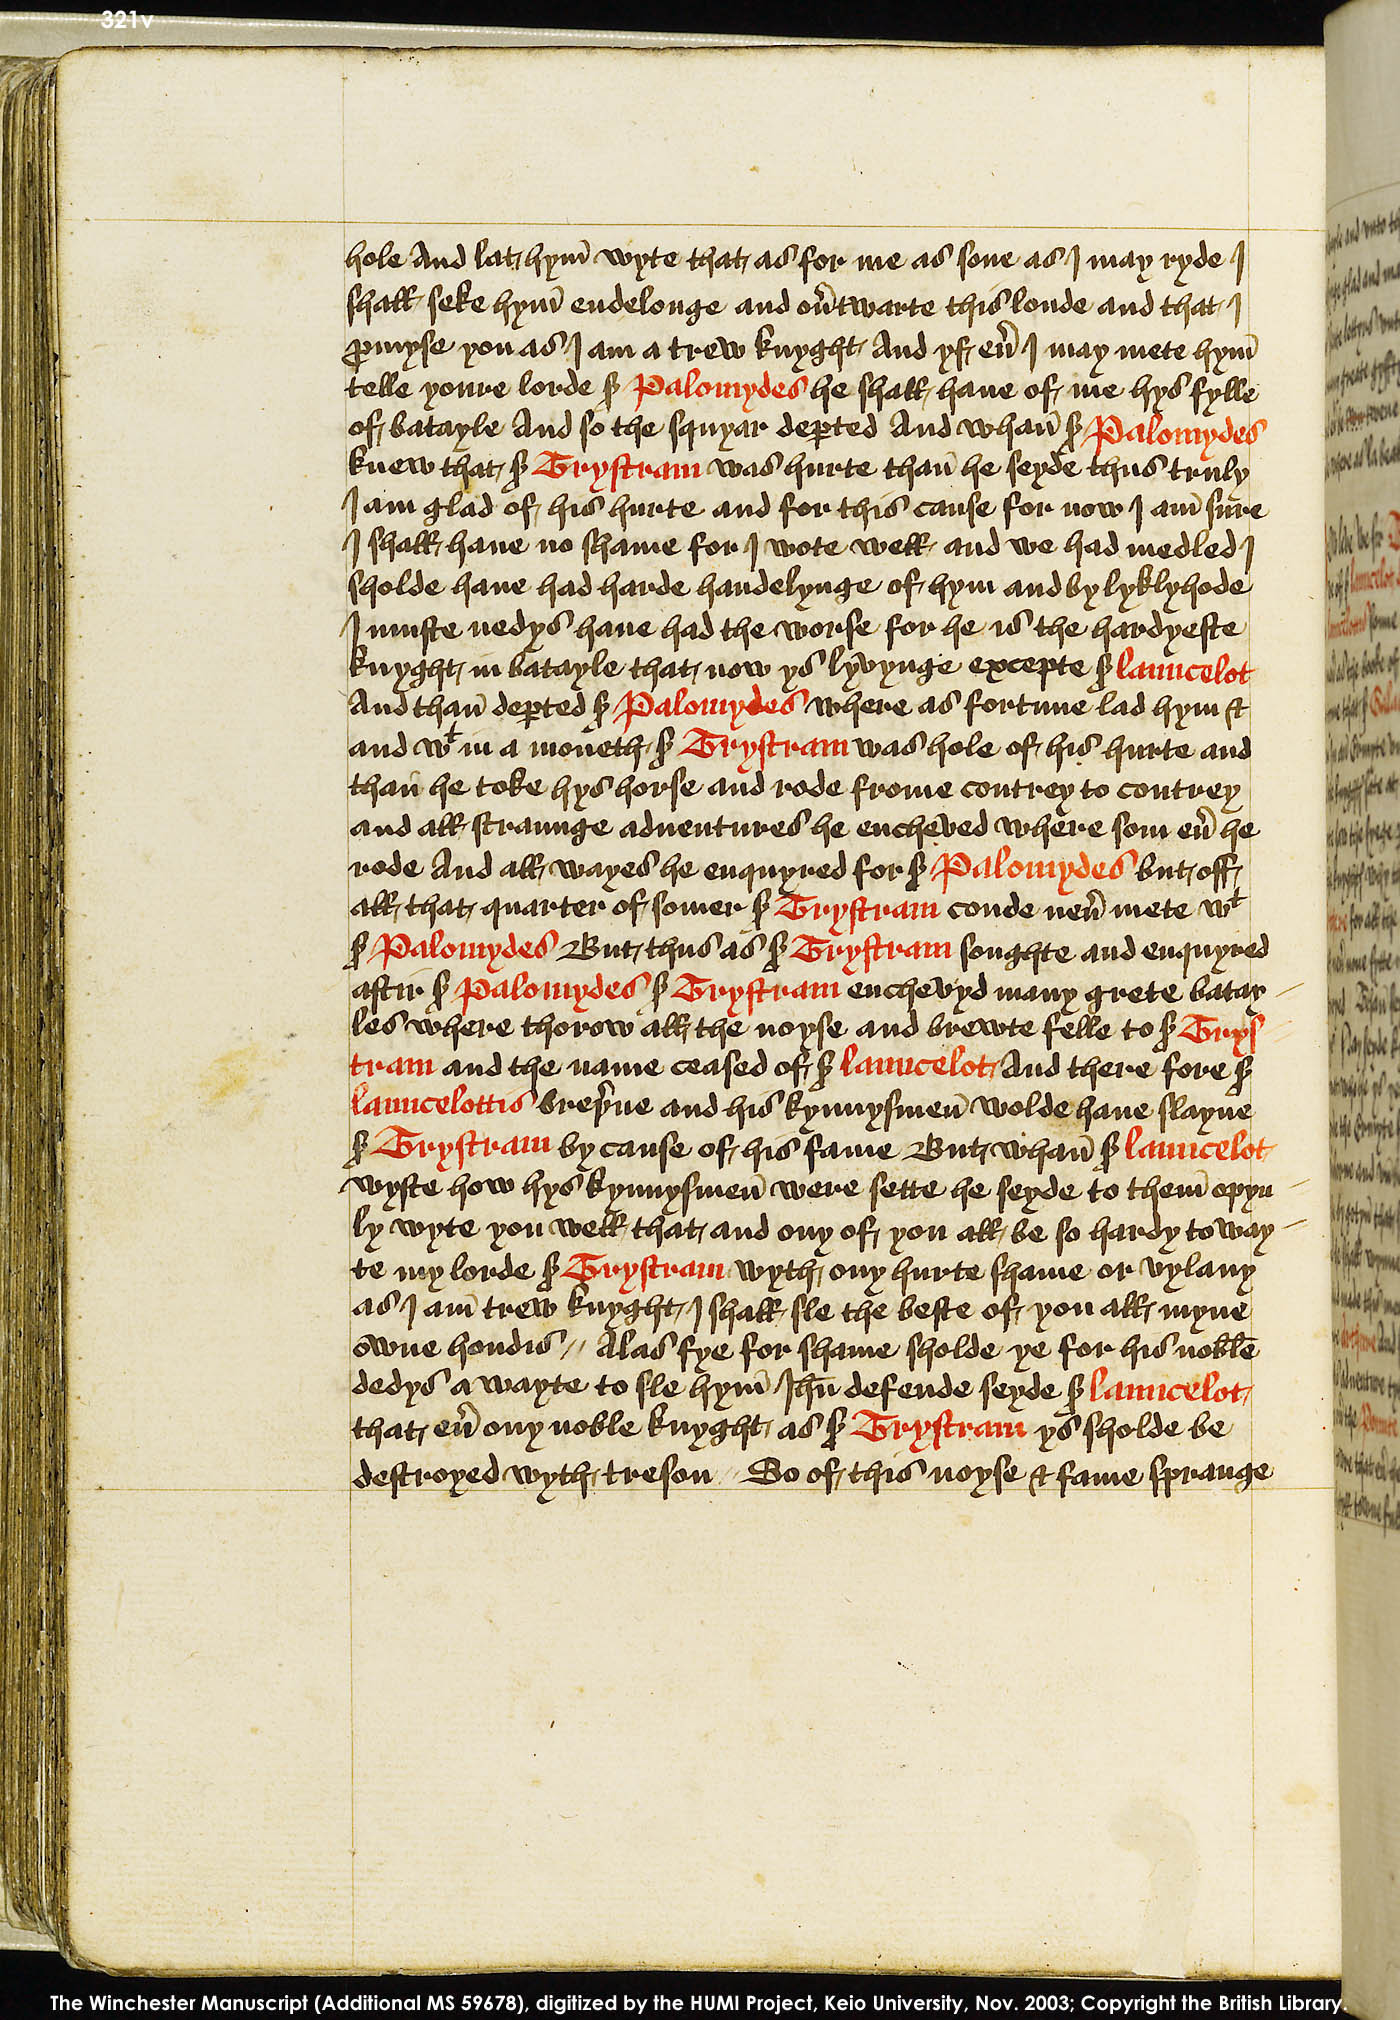 321v
hole And lat hym̄ wyte that as for me as sone as I may ryde I
shall seke hym̄ endelonge and ou̾twarte this londe and that I
ꝓmyse you as I am a trew knyght And yf eu̾ I may mete hym̄
telle youre lorde sꝰ Palomydes he shall haue of me hys fylle
of batayle And so the squyar deꝑted And whan̄ sꝰ Palomydes
knew that sꝰ Trystram was hurte than̄ he seyde thus truly
I am glad of his hurte and for this cause for now I am̄ sure
I shall haue no shame for I wote well and we had medled I
sholde haue had harde handelynge of hym and by lyklyhode
I muste nedys haue had the worse for he is the hardyeste
knyght in batayle that now ys lyvynge excepte sꝰ launcelot
And than̄ deꝑted sꝰ Palomydes where as fortune lad hym &
and wᵗ in a moneth sꝰ Trystram was hole of his hurte and
than̄ he toke hys horse and rode frome contrey to contrey
and all straunge aduentures he encheved where som eu̾ he
rode And all wayes he enquyred for sꝰ Palomydes but off
all that quarter of somer sꝰ Trystram coude neu̾ mete wᵗ
sꝰ Palomydes But thus as sꝰ Trystram soughte and enquyred
aftir sꝰ Palomydes sꝰ Trystram enchevyd many grete batay
les where thorow all the noyse and brewte felle to sꝰ Trys
tram and the name ceased of sꝰ launcelot And there fore sꝰ
launcelottis bretherne and his kynnysmen̄ wolde haue slayne
sꝰ Trystram by cause of his fame But whan̄ sꝰ launcelot
wyste how hys kynnysmen̄ were sette he seyde to them̄ opyn
ly wyte you well that and ony of you all be so hardy to way
te my lorde sꝰ Trystram wyth ony hurte shame or vylany
as I am̄ trew knyght I shall sle the beste of you all myne
owne hondis // Alas fye for shame sholde ye for his noble
dedys a wayte to sle hym̄ Ihū defende seyde sꝰ launcelot
that eu̾ ony noble knyght as sꝰ Trystram ys sholde be
destroyed wyth treson // So of this noyse & fame sprange
The Winchester Manuscript (Additional MS 59678), digitized by the HUMI Project, Keio University, Nov. 2003; Copyright the British Library.